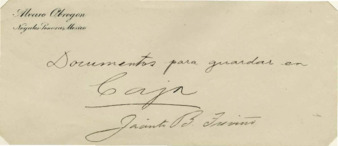 Alvaro Obregon
Nogales Sonora, Mexico
Documentos para guardar en
Caja
Jacinto B Treviño